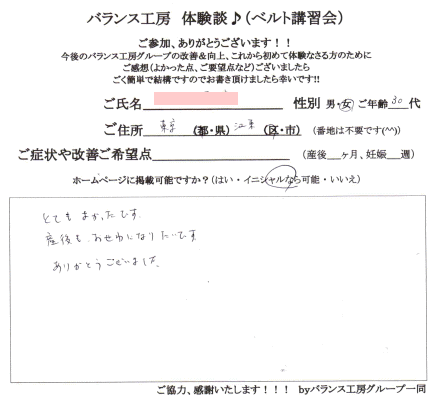 バランス工房 体験談♪(ベルト講習会)
ご参加、ありがとうございます！！
今後のバランス工房グループの改善＆向上、これから初めて体験なさる方のために
ご感想(よかった点、ご要望点など)ございましたら
ごく簡単で結構ですのでお書き頂けましたら幸いです!!
ご氏名 性別 男・女 ご年齢 30 代
ご住所 東京 (都・県) 江東 (区・市) (番地は不要です(^^))
ご症状や改善ご希望点 (産後 ヶ月、妊娠 週)
ホームページに掲載可能ですか？(はい・イニシャルなら可能・いいえ)
とてもよかったです。
産後も、おせわになりたいです
ありがとうございました。
ご協力、感謝いたします！！！ byバランス工房グループ一同